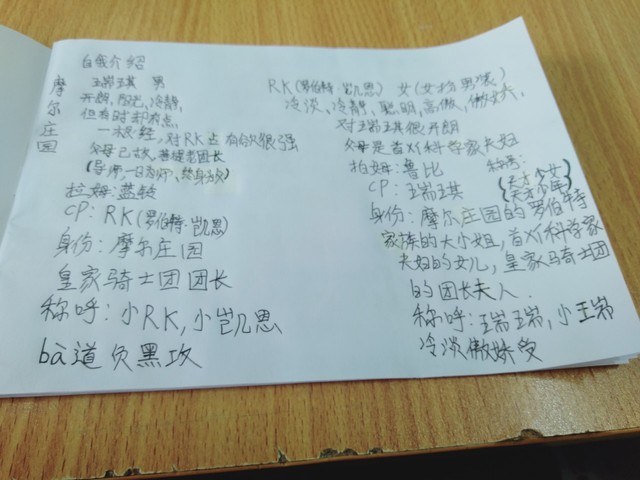 自我介绍
摩尔庄园
王瑞琪 男
开朗,阳光,冷静,
但有时却有点
一根轻,对RK占有欲很强
父母已故,菩提老团长
(导师,一日为师、终身为父)
拉姆:蓝铃
CP:RK(罗伯特·凯恩)
身份:摩尔庄园
皇家骑士团团长
称呼:小RK,小凯恩
bà道负黑攻
RK(罗伯特·凯恩) 女(女扮男装)
冷淡、冷静、聪明,高傲,傲娇,
对瑞琪很开朗
父母是首席科学家夫妇
拉姆:鲁比
CP:王瑞琪
称号:
{天才少女
天才少年}
身份:摩尔庄园的罗伯特
家族的大小姐,首席科学家
夫妇的女儿,皇家骑士团
的团长夫人.
称呼:瑞瑞,小王瑞
冷淡傲娇受